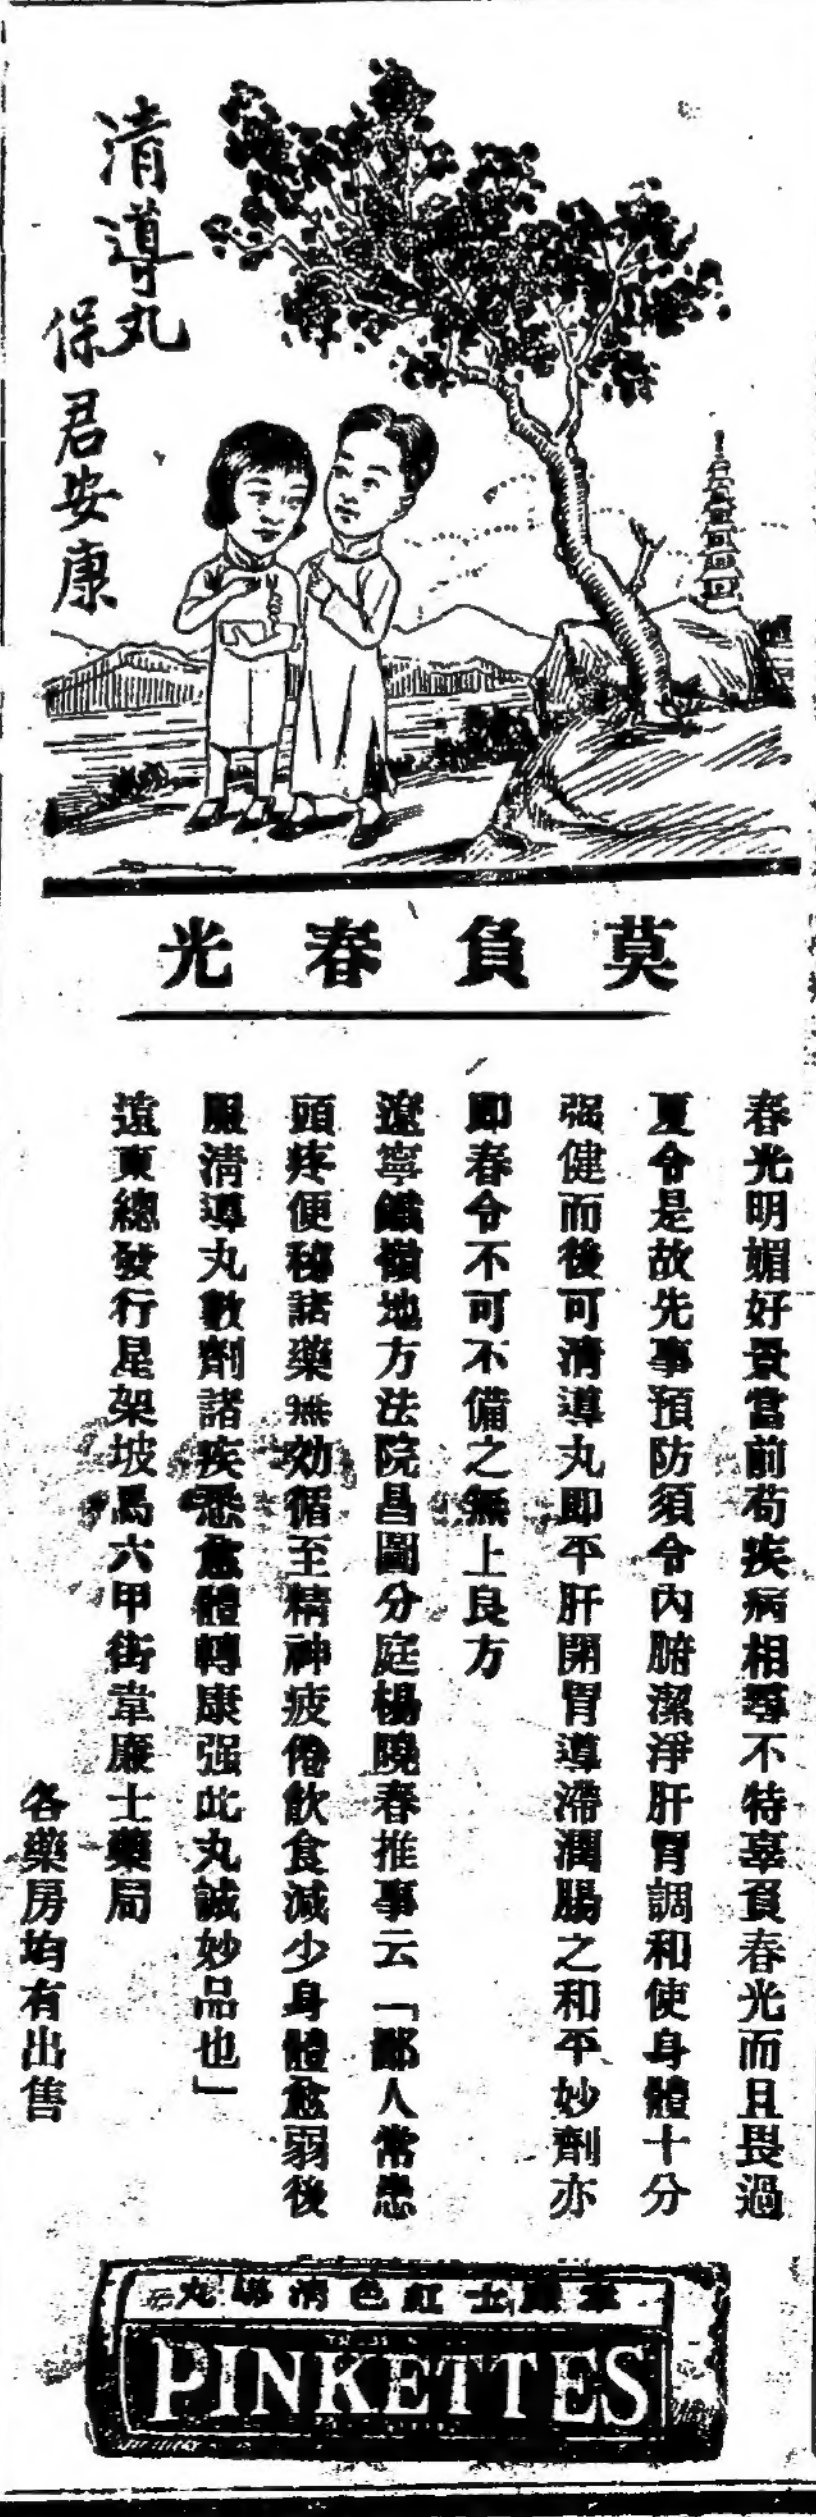 清導丸
保君安康
莫負春光
春光明媚好景當前苟疾病相尋不特辜負春光而且畏過
夏令是故先事預防須令內腑潔淨肝胃調和使身體十分
强健而後可清導丸即平肝開胃導滯潤腸之和平妙劑亦
即春令不可不備之無上良方
遼寧鐵嶺地方法院昌圖分庭楊曉春推事云「鄙人常患
頭疼便秘諸藥無効循至精神疲倦飲食減少身體愈弱後
服清導丸數劑諸疾悉愈體轉康强此丸誠妙品也」
遠東總發行星架坡馬六甲街韋廉士藥局
各藥房均有出售
韋廉士紅色清導丸
PINKETTES